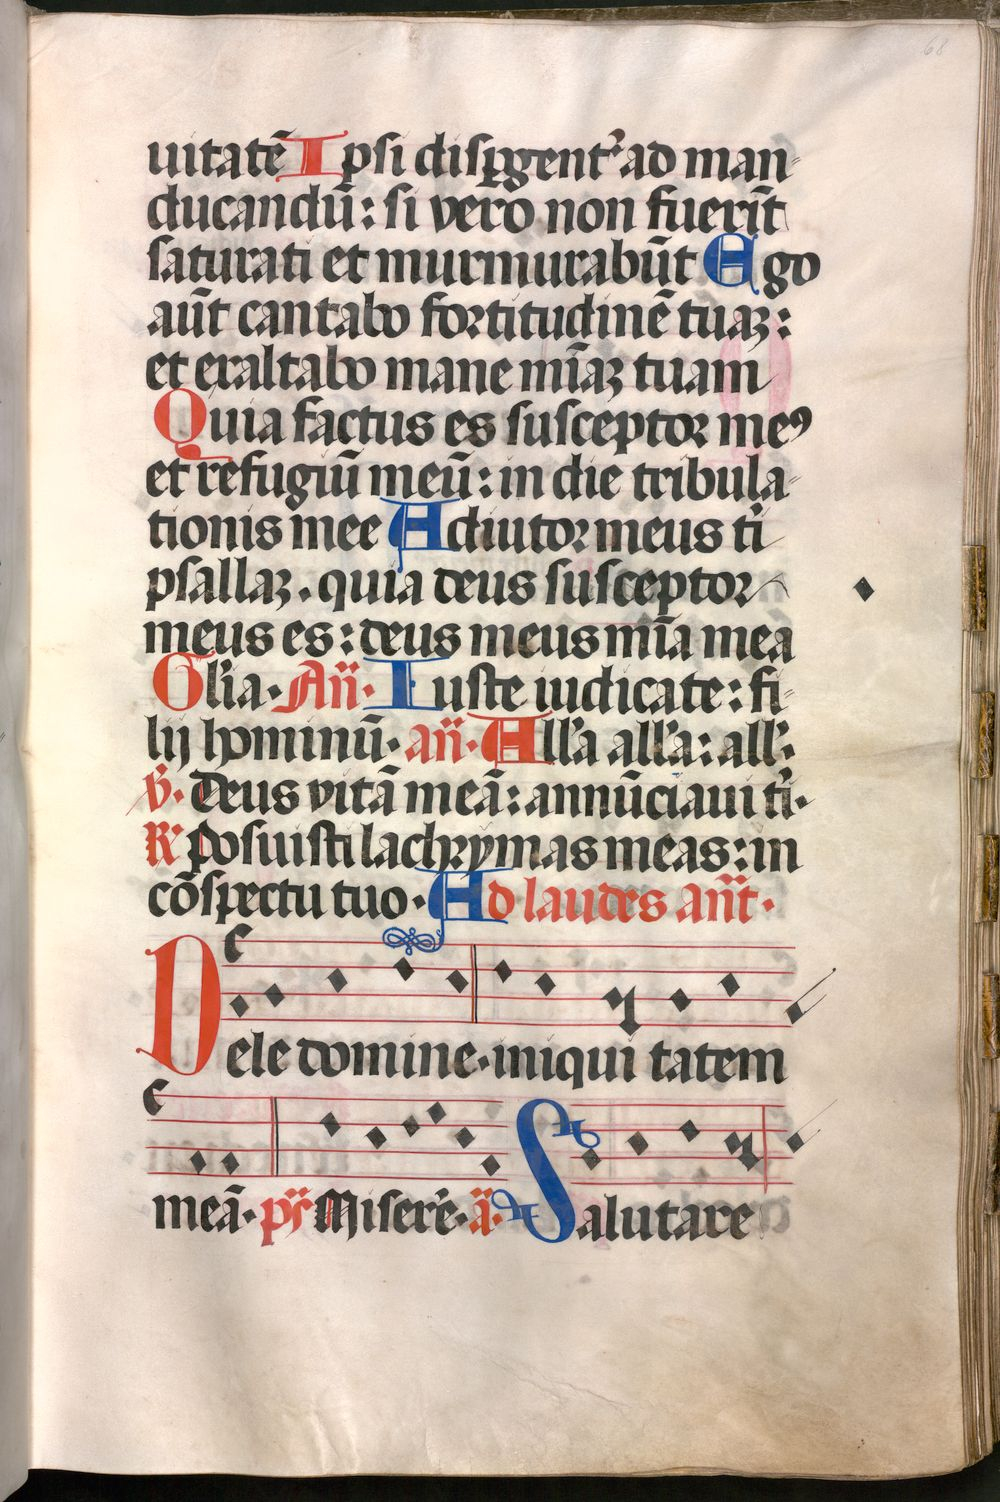 68
uitatē Ipsi disp̱gent᷑ ad man-
ducandū: si vero non fuerīt
saturati et murmurabūt Ego
aūt cantabo fortitudinē tuaꝫ:
et exaltabo mane mīaꝫ tuam
Quia factus es susceptor meꝰ
et refugiū meū: in die tribula-
tionis mee Adiutor meus ti
psallaꝫ. quia deus susceptor
meus es: deus meus mīa mea
Gl'ia. An̄. Iuste iudicate: fi-
lij hominū. an̄. All'a all'a: all'.
℣. Deus vitā meā: annūciaui ti.
℟ posuisti lachrymas meas: in
cōspectu tuo. Ad laudes an̄t.
Dele domine. iniqui tatem
meā. ps̄ Miserē. ā. Salutare